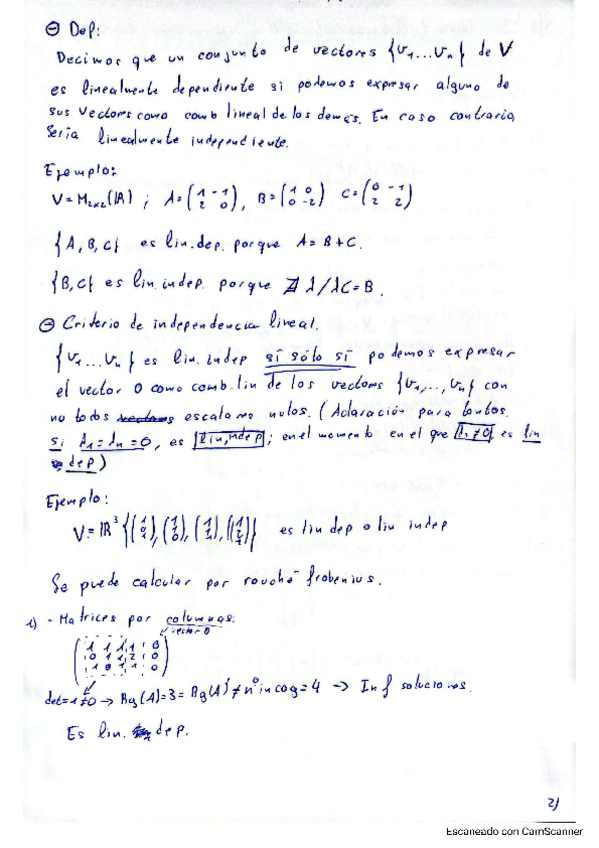 ⊖ Def:
Decimos que un conjunto de vectores {v₁...vₙ} de V
es linealmente dependiente si podemos expresar alguno de
sus vectores como comb lineal de los demás. En caso contrario
sería linealmente independiente.
Ejemplo:
V = M₂ₓ₂(ℝ) ; A = (1 -1 / 2 0), B = (1 0 / 0 -2) C = (0 -1 / 2 2)
{A, B, C} es lin. dep. porque A = B + C.
{B, C} es lin. indep. porque ∄ λ / λC = B.
⊖ Criterio de independencia lineal.
{v₁...vₙ} es lin. indep sí sólo sí podemos expresar
el vector 0 como comb. lin de los vectores {v₁,...,vₙ} con
no todos escalares nulos. (Aclaración para tontos.
si λ₁ = λₙ = 0, es lin, indep; en el momento en el que λ₁ ≠ 0 es lin
dep)
Ejemplo:
V = ℝ³ es lin dep o lin indep
Se puede calcular por rouché frobenius.
1) - Matrices por columnas.
vector 0
(1 1 1 1 : 0
0 1 1 2 : 0
1 0 1 1 : 0)
det = 1 ≠ 0 → Rg(A) = 3 = Rg(A)' ≠ nº incog = 4 → Inf soluciones.
Es lin. dep.
2)
Escaneado con CamScanner